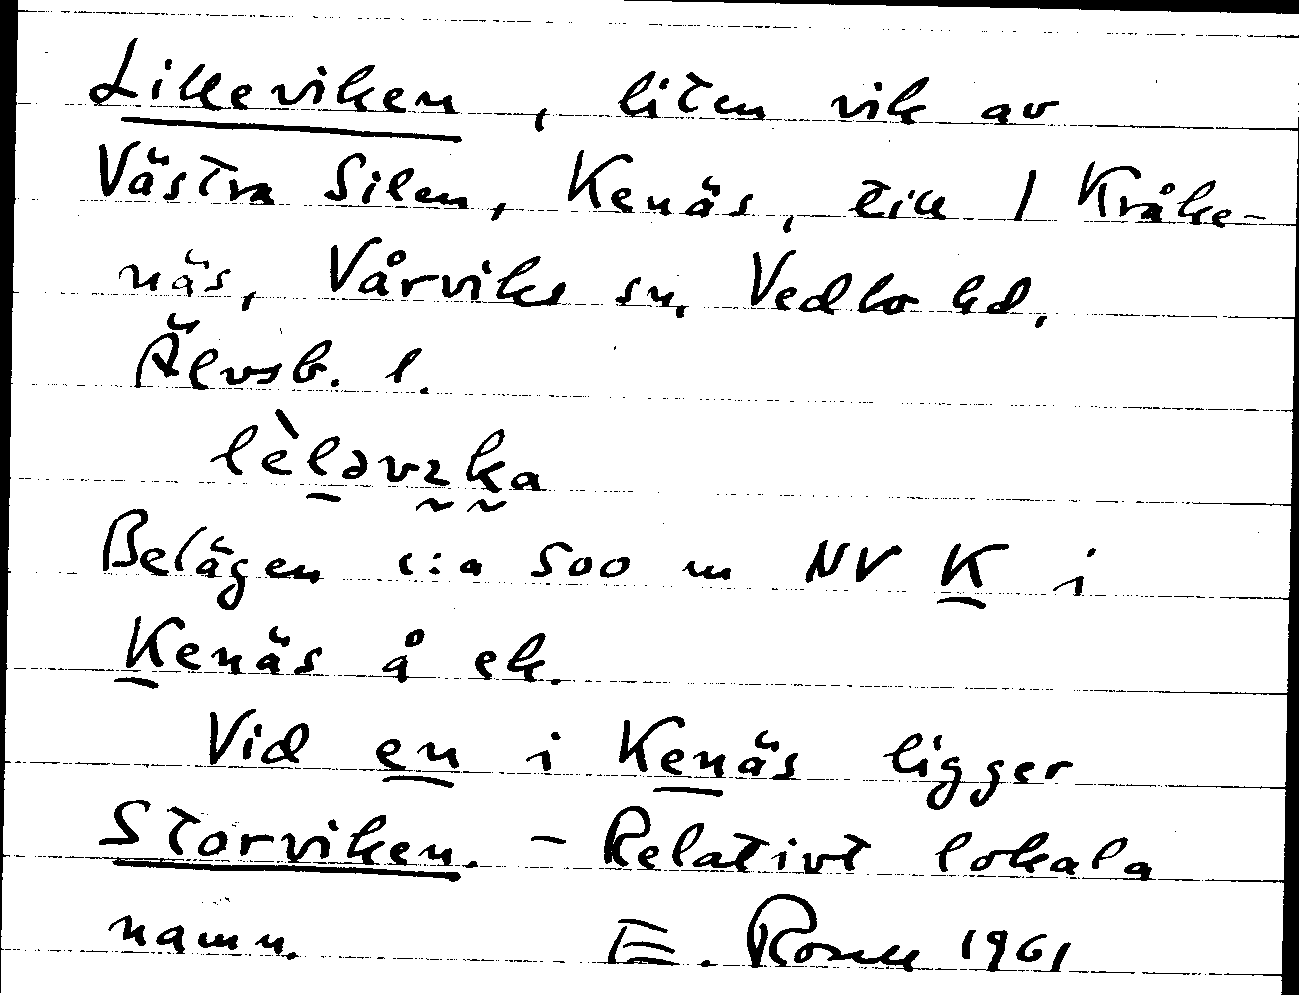 Lilleviken, liten vik av
Västra Silen, Kenäs, till 1 Kråke-
näs, Vårviks sn, Vedbo hd,
Älvsb. l.
lèləvɩka
Belägen c:a 500 m NV K i
Kenäs å ek.
Vid en i Kenäs ligger
Storviken. - Relativt lokala
namn. E. 1961